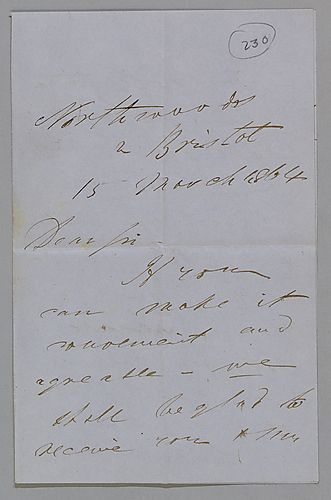 230
Northwoods
n Bristol
15 March 1864
Dear Sir
If you
can make it
convenient and
agreeable - we
shall be glad to
receive you &